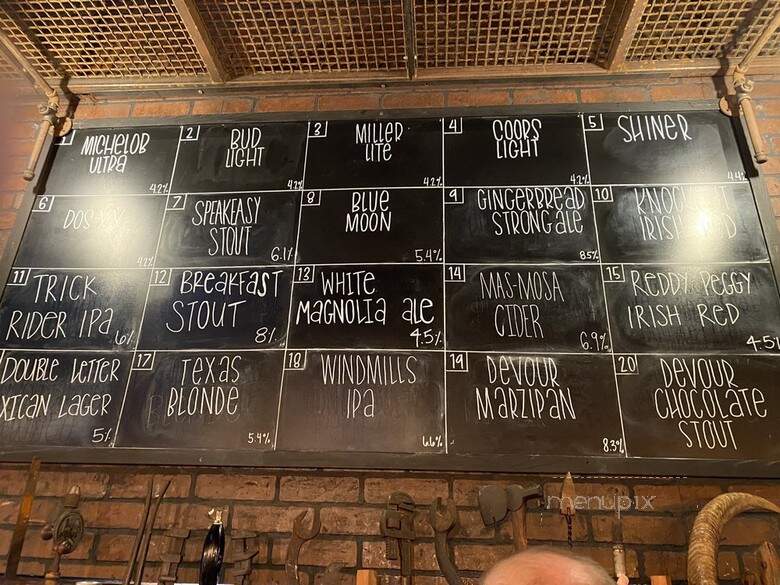 1 MICHELOB
ULTRA
4.2%
2 BUD
LIGHT
4.2%
3 MILLER
LITE
4.2%
4 COORS
LIGHT
4.2%
5 SHINER
4.4%
6
4.2%
7 SPEAKEASY
STOUT
6.1%
8 BLUE
MOON
5.4%
9 GINGERBREAD
STRONG ALE
8.5%
10
IRISH
11 TRICK
RIDER IPA
6%
12 BREAKFAST
STOUT
8%
13 WHITE
MAGNOLIA ale
4.5%
14 MAS-MOSA
CIDER
6.9%
15 REDDY PEGGY
IRISH RED
DOUBLE LETTER
LAGER
5%
17 TEXAS
BLONDE
5.4%
18 WINDMILLS
IPA
6.6%
19 DEVOUR
MARZIPAN
8.3%
20 DEVOUR
CHOCOLATE
STOUT
menupix